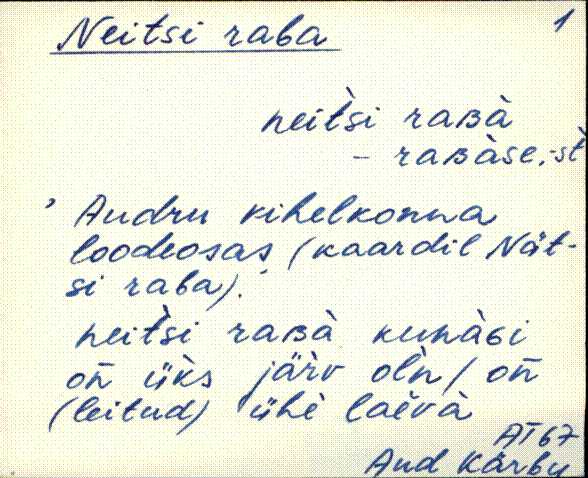 Neitsi raba 1
neit̀si raʙà
– raʙàse, -st
Audru kihelkonna
loodeosas (kaardil Nät-
si raba).
neit̀si raʙà kunàGi
on̄ ük̀s jär̀v oln̄ / on̄
(leitud) ühè laèvà
AT 67
Aud Kärbu